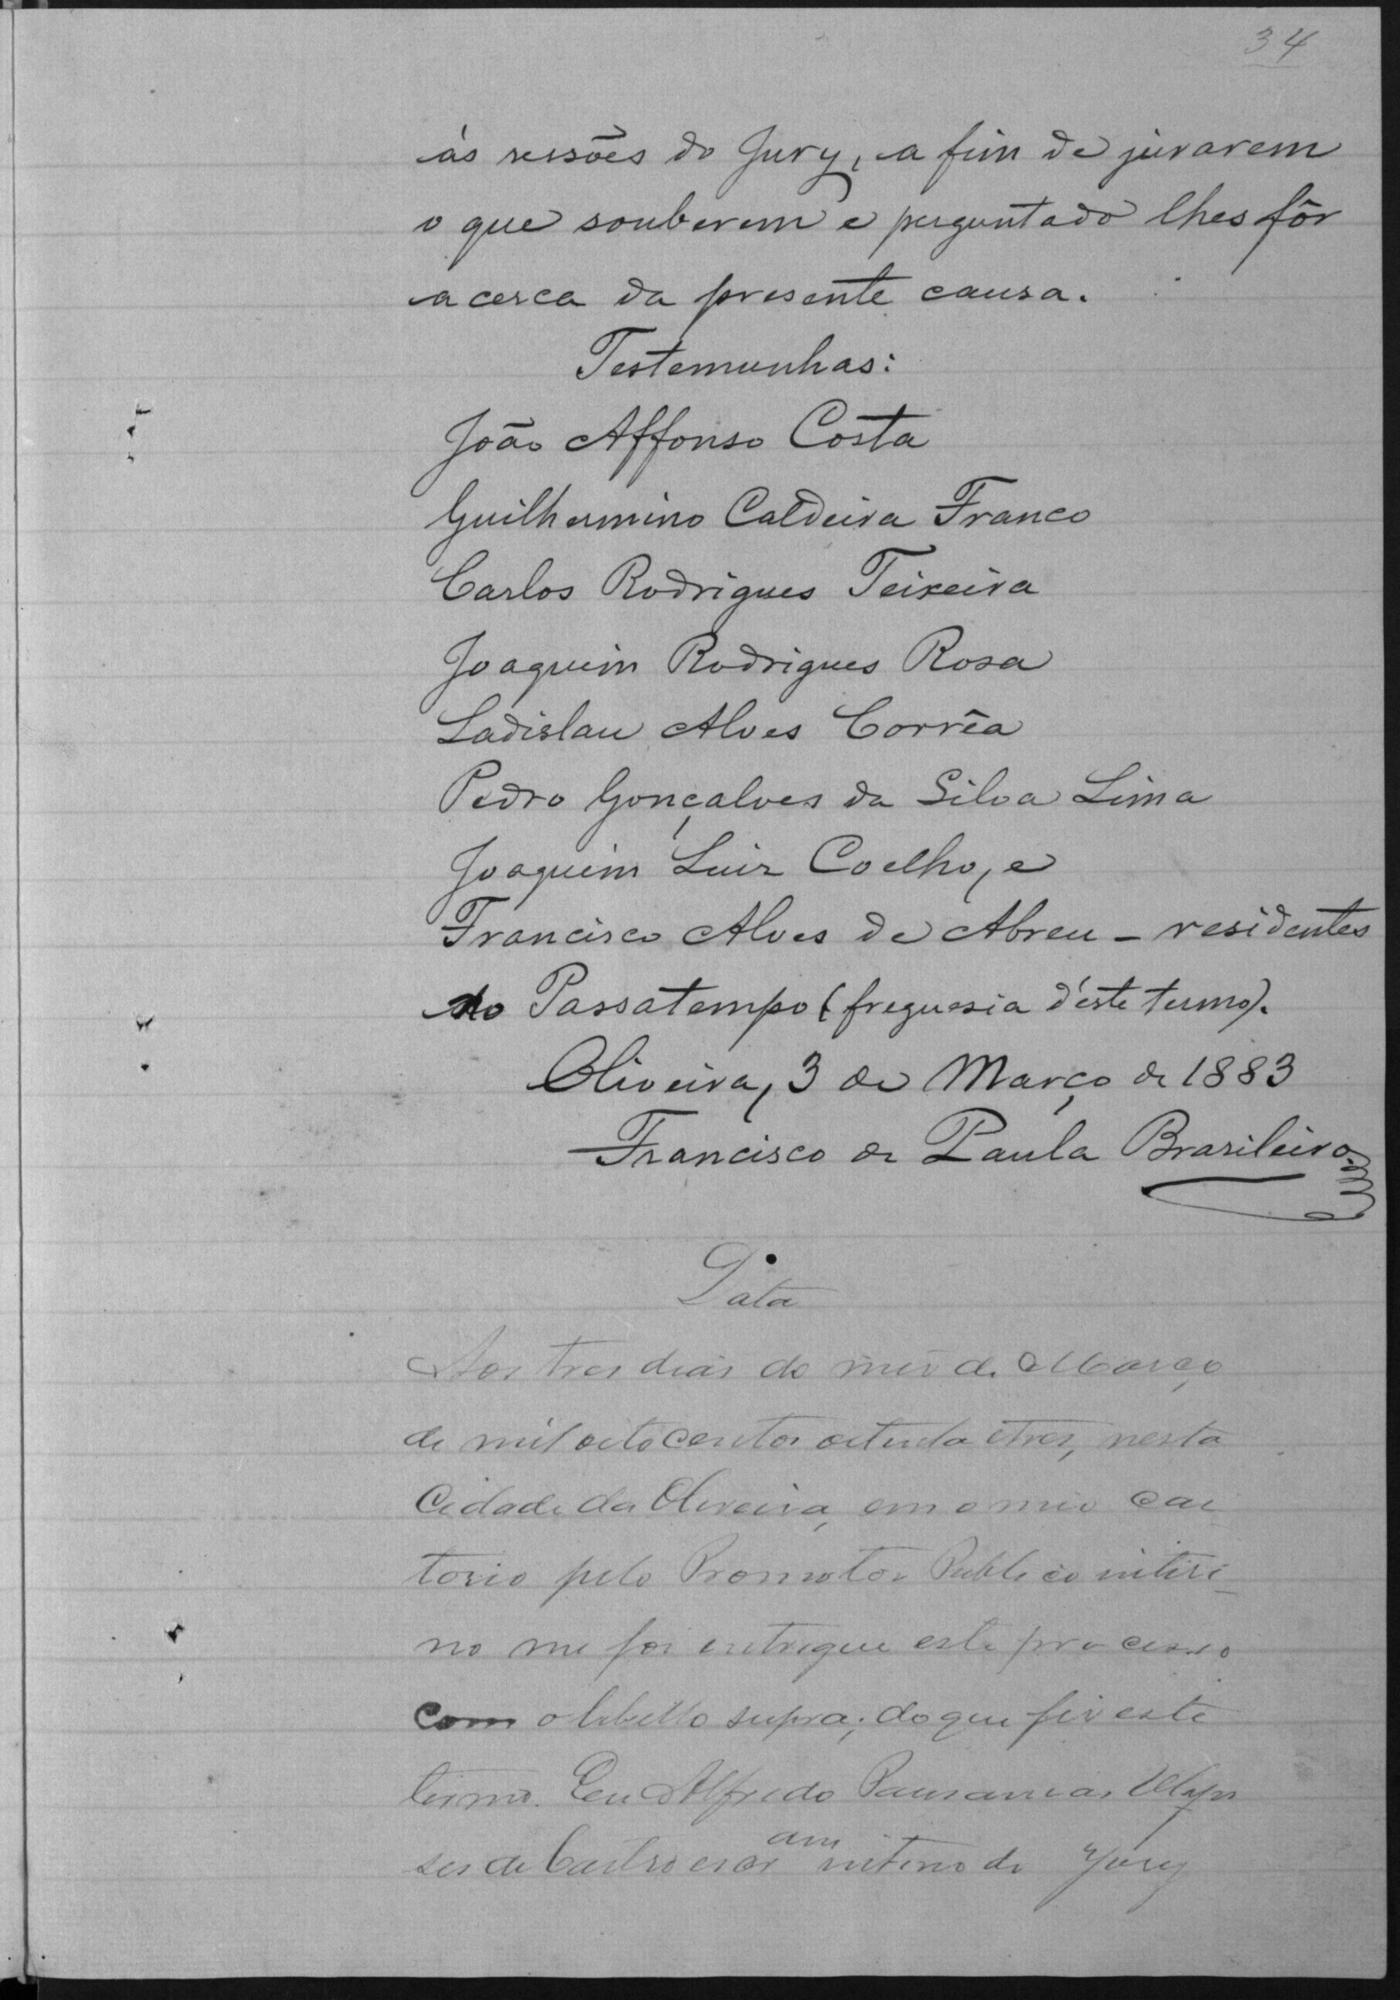 34
ás sessões do Jury, a fim de jurarem
o que souberem e perguntado lhes fôr
acerca da presente causa.
Testemunhas:
João Affonso Costa
Guilhermino Caldeira Franco
Carlos Rodrigues Teixeira
Joaquim Rodrigues Rosa
Ladislau Alves Corrêa
Pedro Gonçalves da Silva Lima
Joaquim Luiz Coelho, e
Francisco Alves de Abreu - residentes
no Passatempo (freguesia d'este termo).
Oliveira, 3 de Março de 1883
Francisco de Paula Brasileiro
Data
Aos tres dias do mez de Março
de mil oito centos oitenta e tres, nesta
Cidade da Oliveira, em o meo car
torio pelo Promotor Publico interi-
no me foi entregue este processo
com o libello supra; do que fiz este
termo. Eu Alfredo Pausanias Ulys
ses de Castro escr am interino do Jury